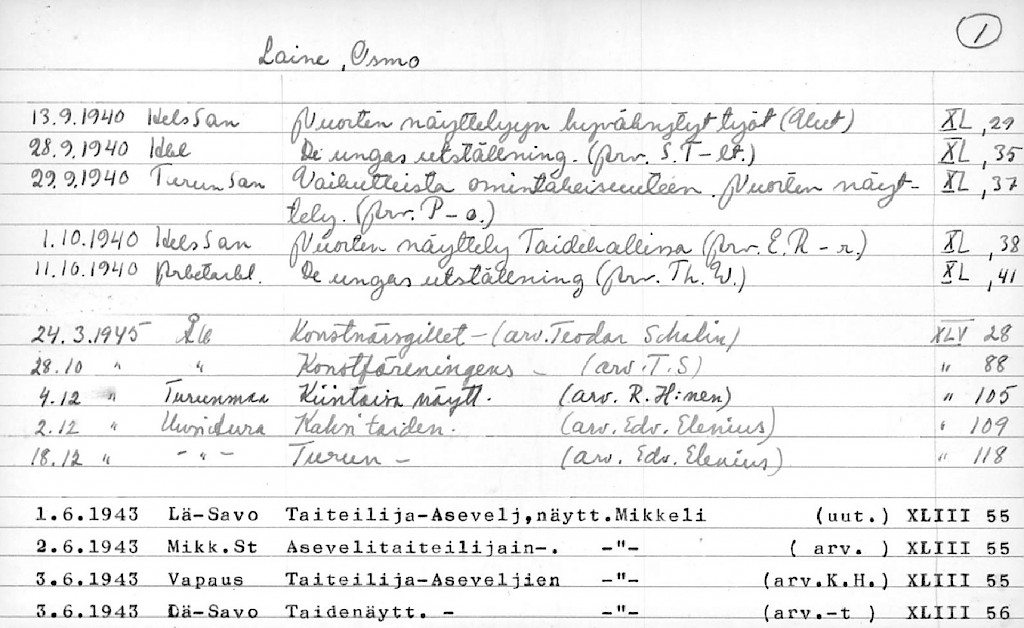 1
Laine, Osmo
13.9.1940 HelsSan Nuorten näyttelyyn hyväksytyt työt (Alut) XL, 29
28.9.1940 Hbl De ungas utställning. (arv. S.T-lt.) XL, 35
29.9.1940 TurunSan Vaikutteista omintakeisuuteen. Nuorten näyt-
tely. (arv. P-o.) XL, 37
1.10.1940 HelsSan Nuorten näyttely Taidehallissa (arv. E.R-r.) XL, 38
11.10.1940 Arbetarbl. De ungas utställning (arv. Th. W.) XL, 41
24.3.1945 ÅU Konstnärsgillet - (arv. Teodor Schalin) XLV 28
28.10 " " Konstföreningens - (arv. T.S) " 88
4.12 " Turunmaa Kiintoisa näytt. (arv. R. H:nen) " 105
2.12 " UusiAura Kaksi taiden. (arv. Edv. Elenius) " 109
18.12 " - " - Turun - (arv. Edv. Elenius) " 118
1.6.1943 Lä-Savo Taiteilija-Asevelj,näytt.Mikkeli (uut.) XLIII 55
2.6.1943 Mikk.St Asevelitaiteilijain-. -"- ( arv. ) XLIII 55
3.6.1943 Vapaus Taiteilija-Aseveljien -"- (arv.K.H.) XLIII 55
3.6.1943 Lä-Savo Taidenäytt. - -"- (arv.-t ) XLIII 56